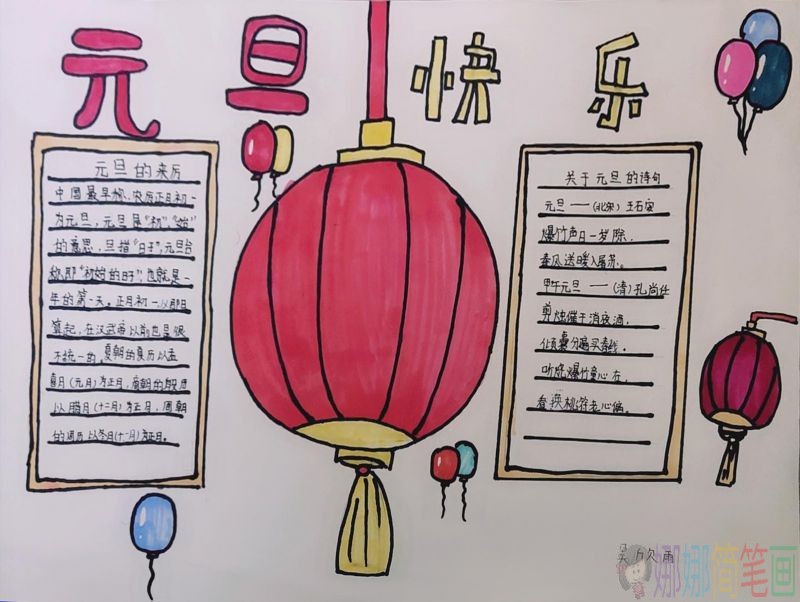 元旦快乐
元旦的来历
中国最早称、农历正月初一
为元旦，元旦是"初""始"
的意思，旦指"日子"，元旦合
称即"初始的日子"也就是一
年的第一天。正月初一从那日
算起，在汉武帝以前也是很
不统一的 夏朝的夏历以孟
喜月(元月)为正月，商朝的殷历
以腊月(十二月)为正月，周朝
的周历以冬月(十一月)为正月。
关于元旦的诗句
元旦——(北宋)王石安
爆竹声日一岁除，
春风送暖入屠苏。
甲午元旦——(清)孔尚任
剪烛催干消夜酒，
囊分遍买春钱。
听烧爆竹童心在，
看换桃符老心偏。
吴欣雨
娜娜简笔画